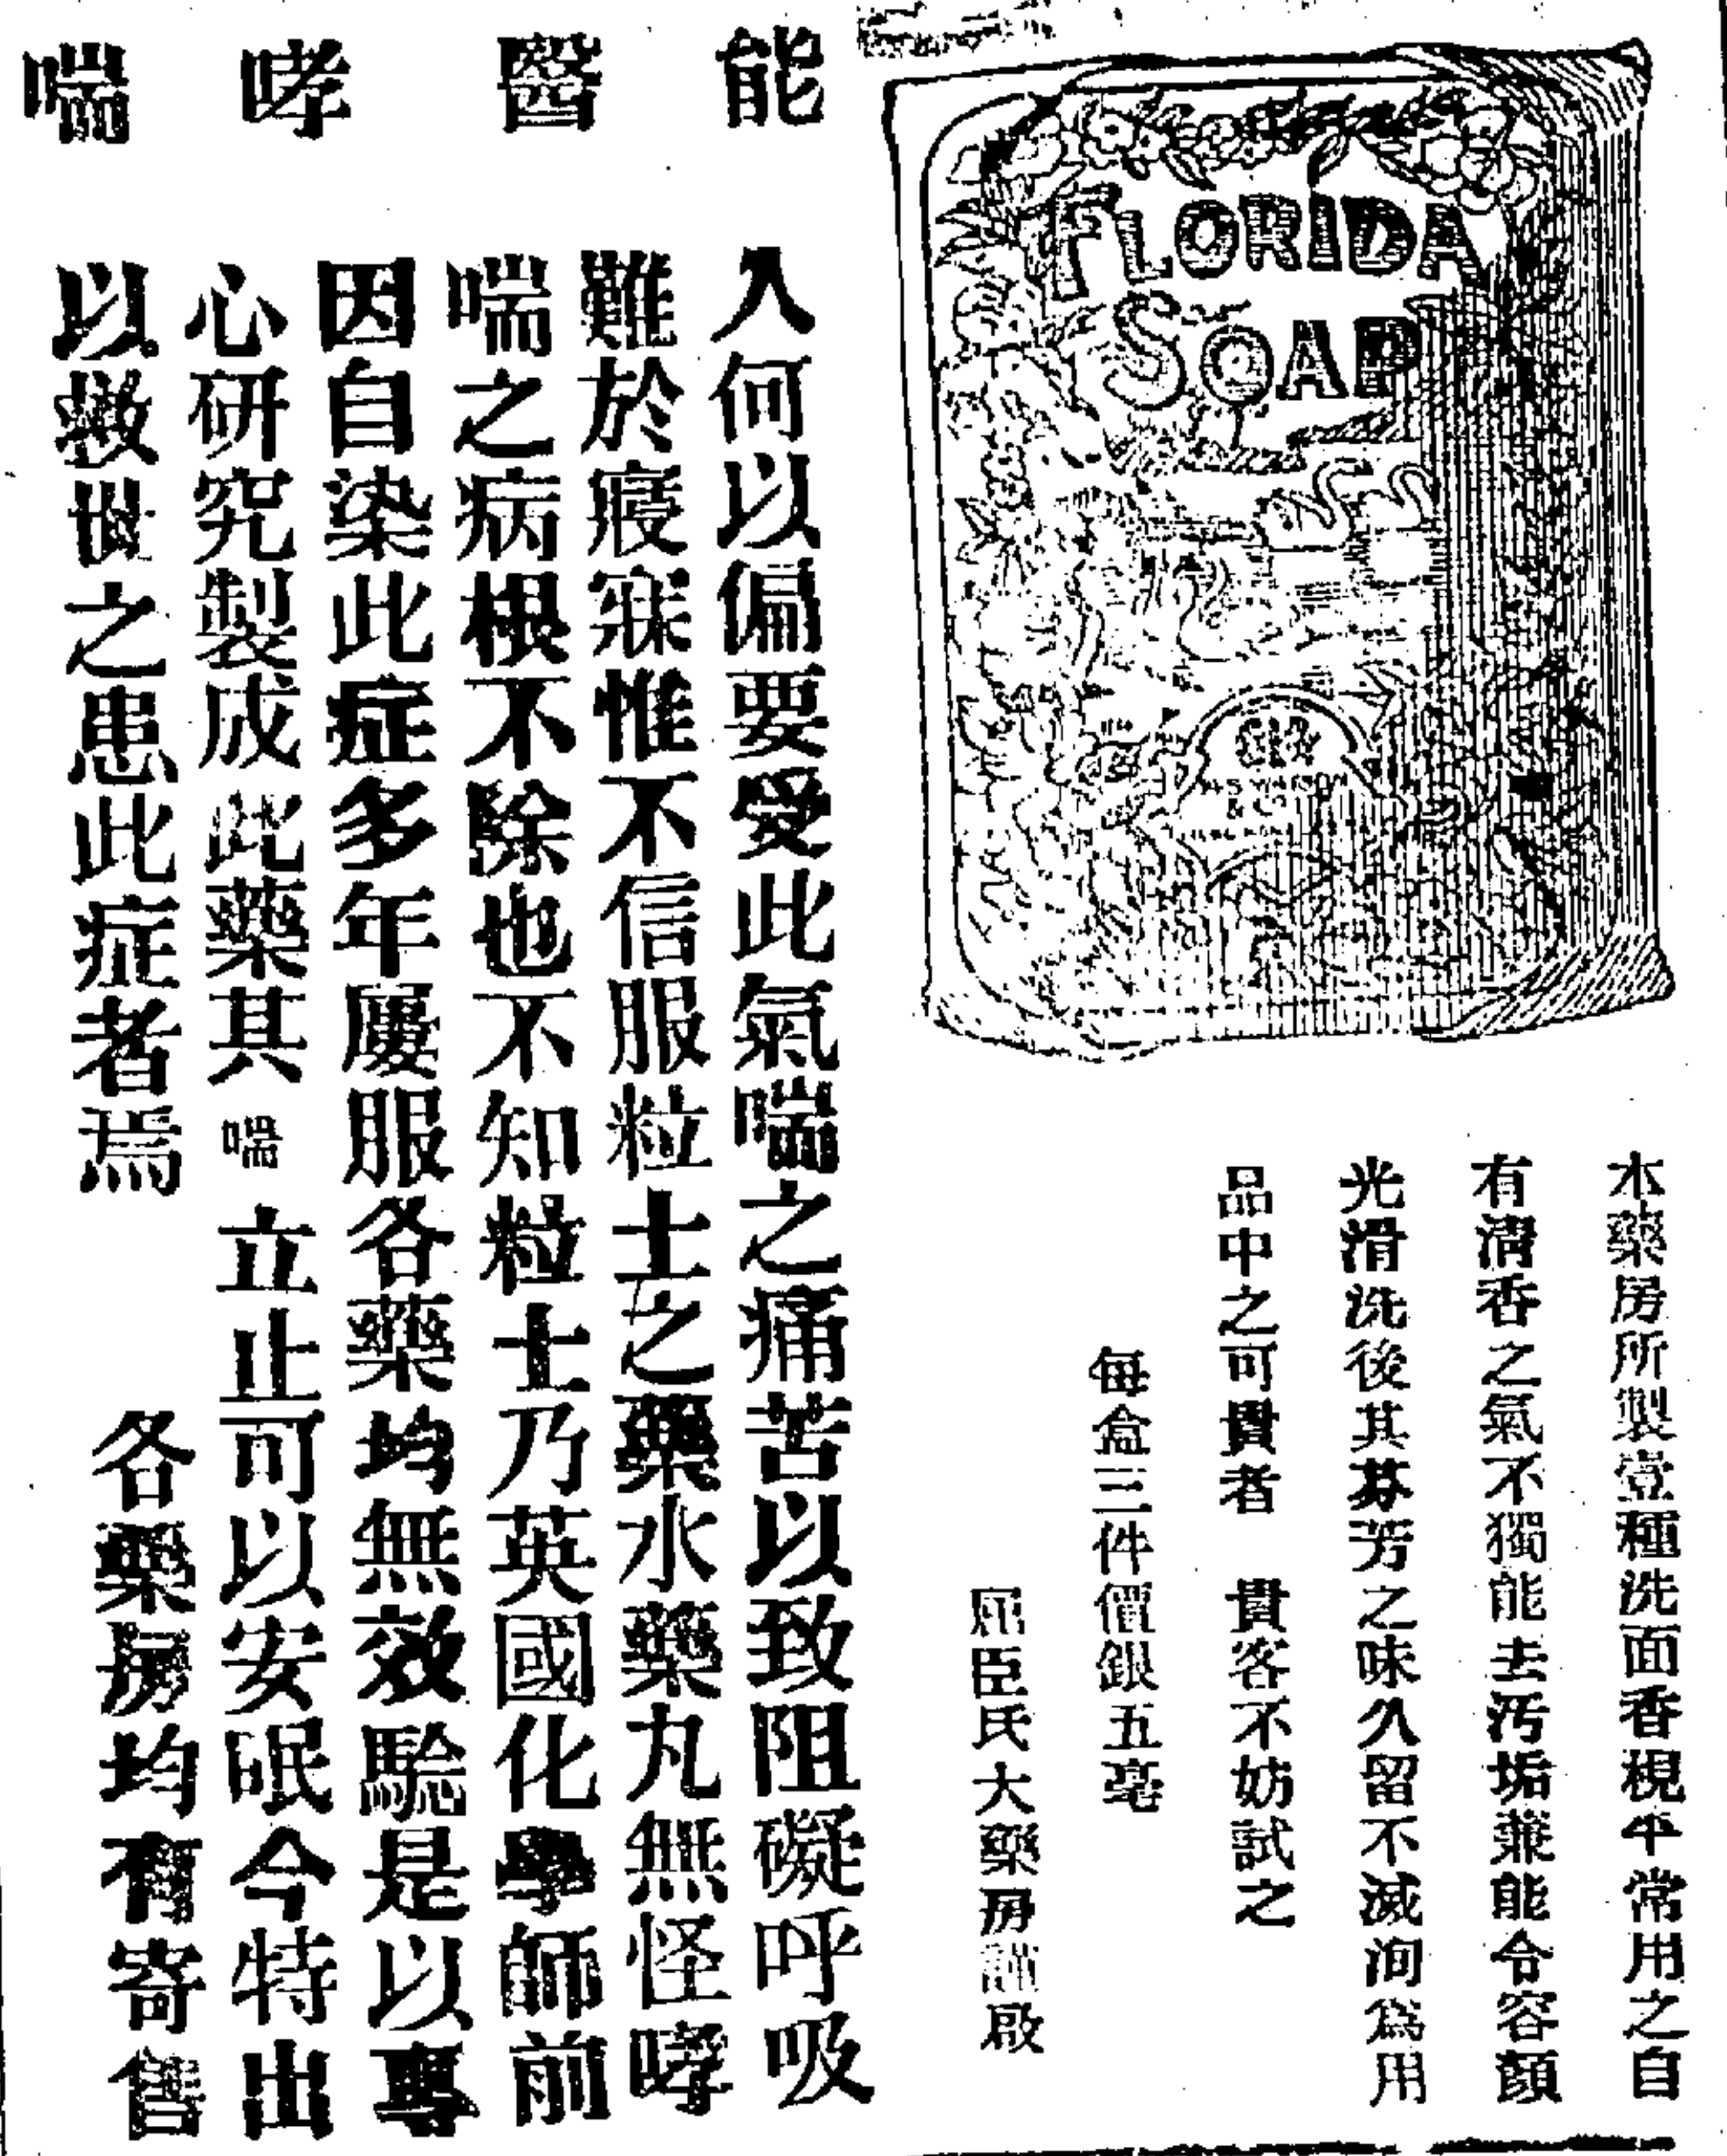 FLORIDA
SOAP
本藥房所製壹種洗面香梘平常用之自
有清香之氣不獨能去汚垢兼能令容顏
光滑洗後其芬芳之味久留不滅洵為用
品中之可貴者 貴客不妨試之
每盒三件價銀五毫
屈臣氏大藥房謹啟
能醫哮喘
人何以偏要受此氣喘之痛苦以致阻礙呼吸
難於寢寐惟不信服粒士之藥水藥丸無怪哮
喘之病根不除也不知粒士乃英國化學師前
因自染此症多年屢服各藥均無效驗是以專
心研究製成此藥其喘立止可以安眠今特出
以救世之患此症者焉
各藥房均有寄售